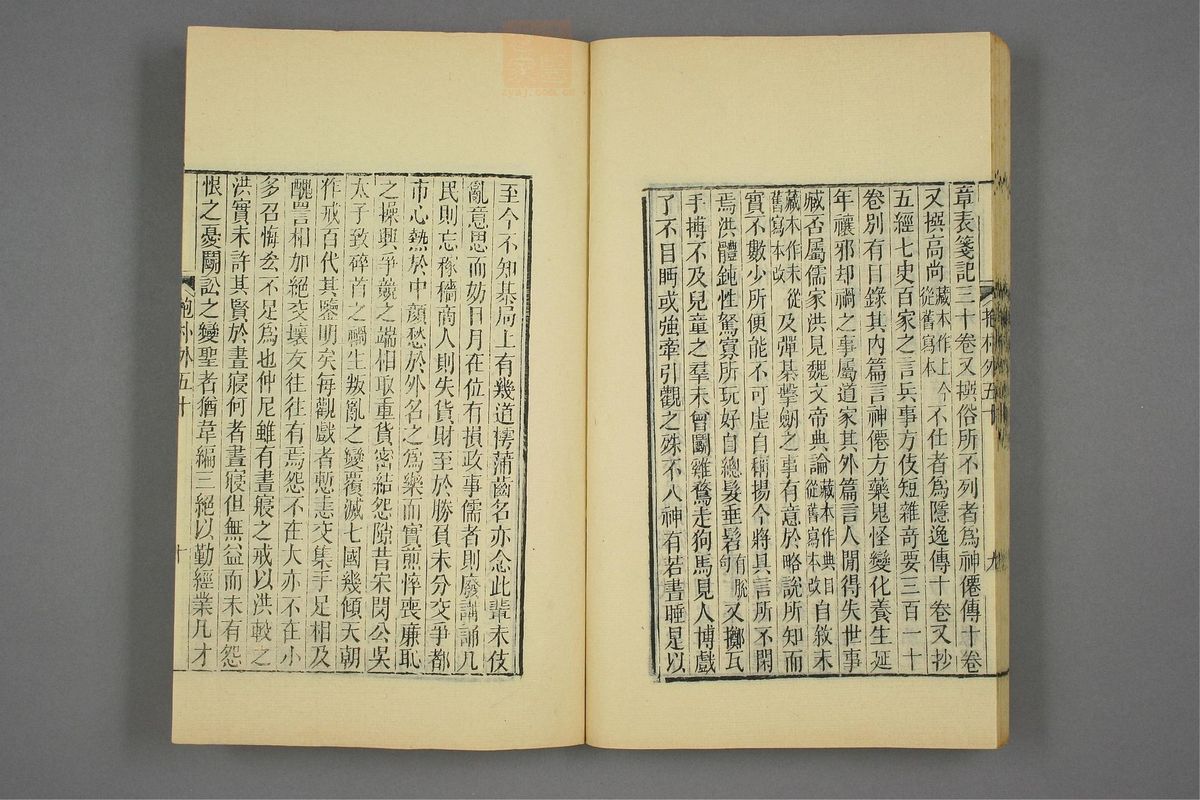 章表箋記三十卷又撰俗所不列者爲神僊傳十卷
又撰高尚藏本作上今從舊寫本不仕者爲隱逸傳十卷又抄
五經七史百家之言兵事方伎短雜奇要三百一十
卷別有目錄其內篇言神僊方藥鬼怪變化養生延
年禳邪却禍之事屬道家其外篇言人閒得失世事
臧否屬儒家洪見魏文帝典論藏本作典目從舊寫本改自敘未
藏本作末從舊寫本改及彈棊擊劒之事有意於略說所知而
實不數少所便能不可虛自稱揚今將具言所不閑
焉洪體鈍性駑寡所玩好自總髮垂髫有脫句又擲瓦
手搏不及兒童之羣未曾鬭雞鶩走狗馬見人博戲
了不目眄或強牽引觀之殊不入神有若晝睡是以
抱朴外五十
九
至今不知棊局上有幾道樗蒲齒名亦念此輩末伎
亂意思而妨日月在位有損政事儒者則廢講誦凡
民則忘稼穡商人則失貨財至於勝負未分交爭都
市心熱於中顏愁於外名之爲樂而實煎悴喪廉恥
之操興爭競之端相取重貨密結怨隙昔宋閔公吳
太子致碎首之禍生叛亂之變覆滅七國幾傾天朝
作戒百代其鑒明矣每觀戲者慙恚交集手足相及
醜詈相加絕交壞友往往有焉怨不在大亦不在小
多召悔吝不足爲也仲尼雖有晝寢之戒以洪較之
洪實未許其賢於晝寢何者晝寢但無益而未有怨
恨之憂鬭訟之變聖者猶韋編三絕以勤經業凡才
抱朴外五十
十